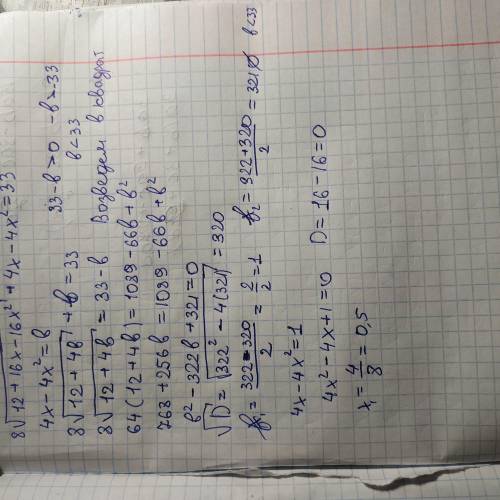 8√12+16x-16x² + 4x-4x² = 33
4x-4x² = b
8√12+4b + b = 33    33-b>0    -b>-33
b<33
8√12+4b = 33-b    Возведем в квадрат
64(12+4b) = 1089-66b+b²
768+256b = 1089-66b+b²
b²-322b+321=0
√D = √322²-4(321) = 320
b₁ = (322-320)/2 = 2/2 = 1    b₂ = (322+320)/2 = 321    b<33
4x-4x² = 1
4x²-4x+1=0    D=16-16=0
x₁ = 4/8 = 0,5